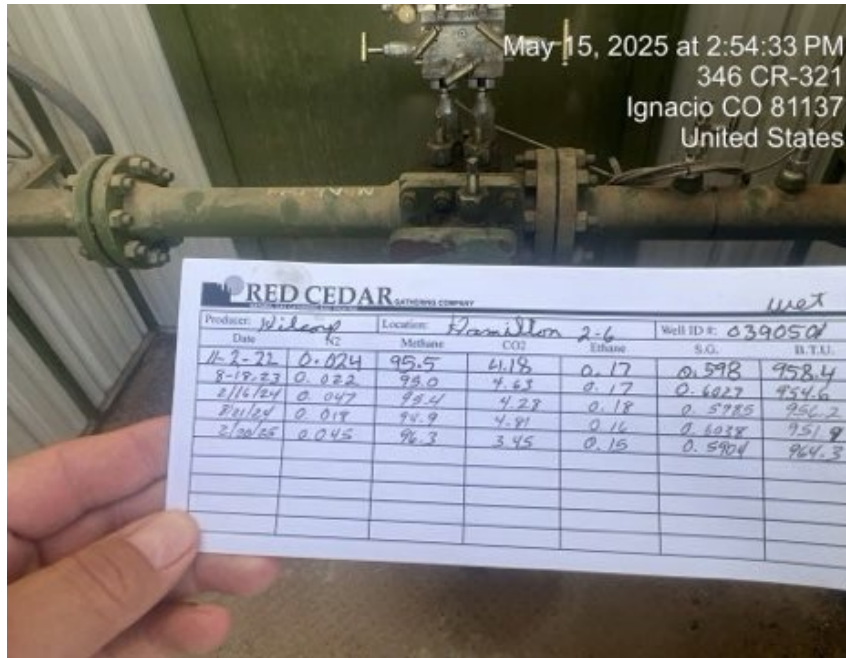 May 15, 2025 at 2:54:33 PM
346 CR-321
Ignacio CO 81137
United States
RED CEDAR GATHERING COMPANY
wet
Producer: Location: Hamilton 2-6 Well ID #:
Date N2 Methane CO2 Ethane S.G. B.T.U.
11-2-22 0.024 95.5 4.18 0.17 0.598 958.4
8-18-23 0.022 95.0 4.63 0.17 0.6027 954.6
2/16/24 0.047 95.4 4.28 0.18 0.5985 956.2
8/21/24 0.018 94.9 4.81 0.16 0.6038 951.9
2/20/25 0.045 96.3 3.45 0.15 0.5904 964.3